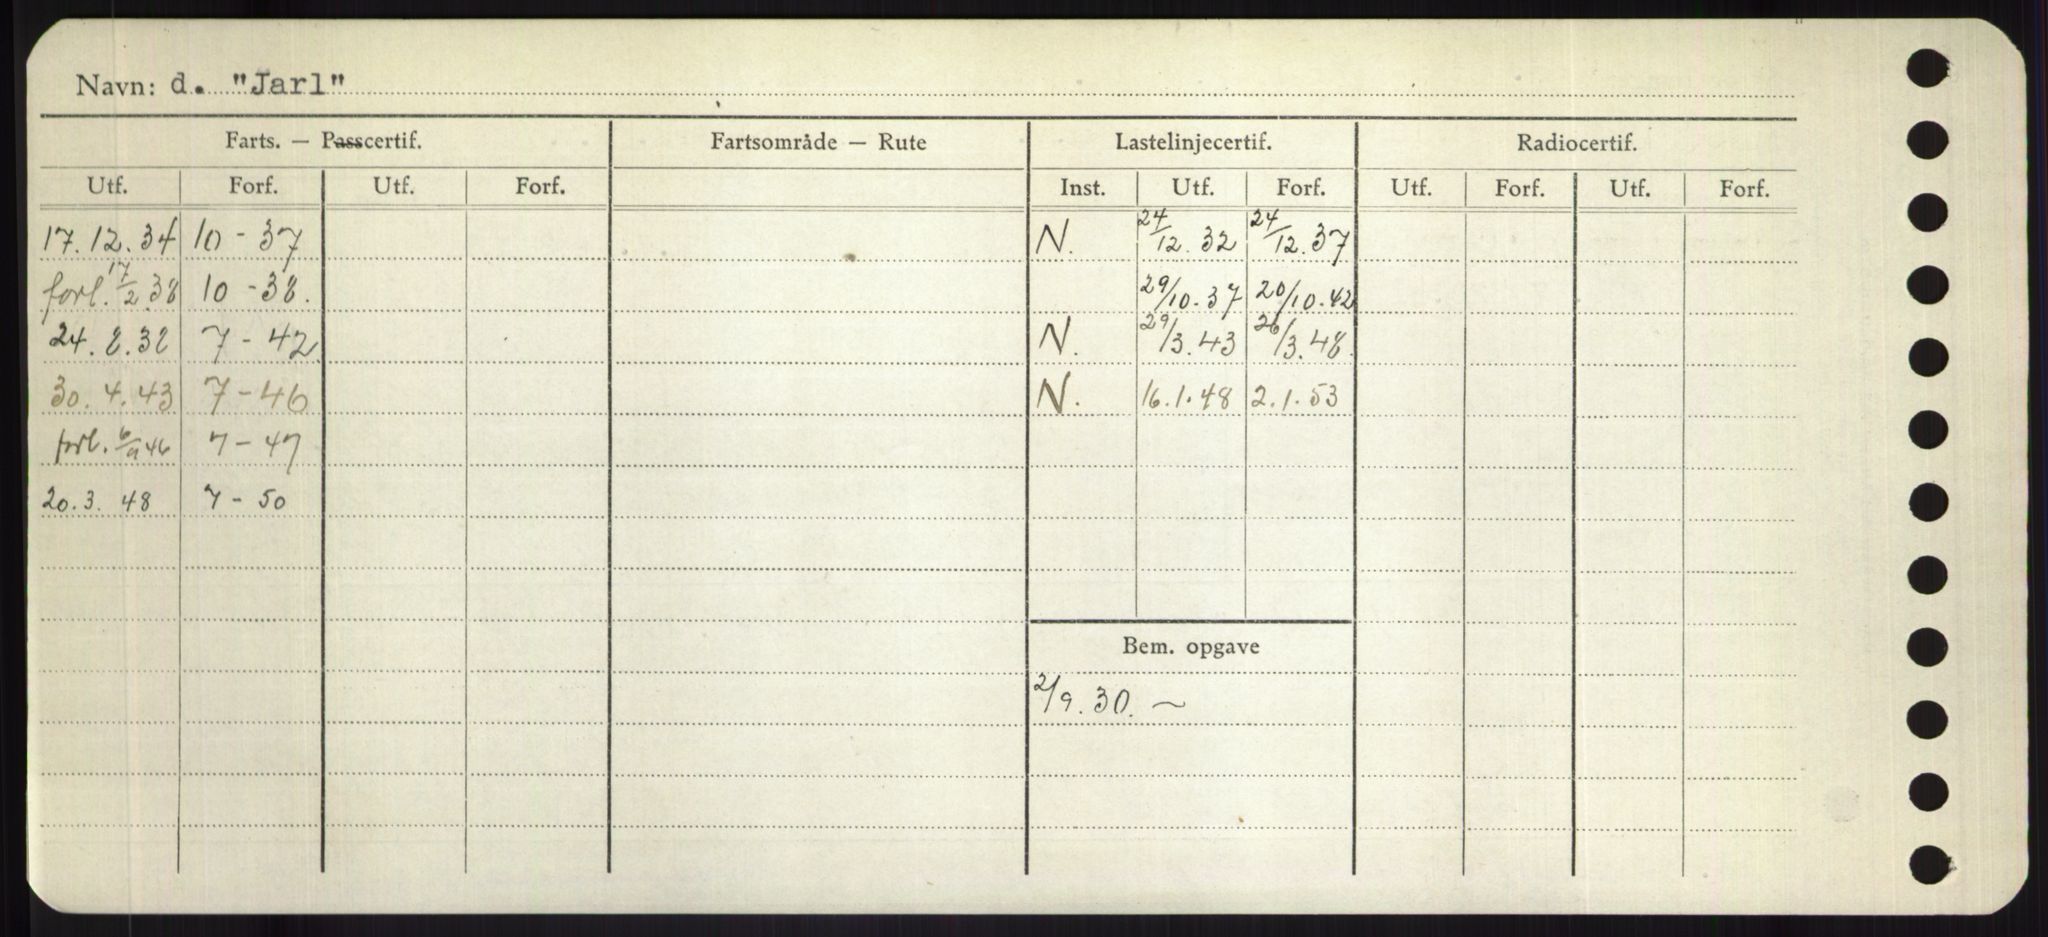 Navn: d. "Jarl"
Farts. — Passcertif. Fartsområde — Rute Lastelinjecertif. Radiocertif.
Utf. Forf. Utf. Forf. Inst. Utf. Forf. Utf. Forf. Utf. Forf.
17.12.34 10-37 N. 24/12.32 24/12.37
forl. 17/2 38 10-38. 29/10.37 20/10.42
24.8.38 7-42 N. 29/3.43 26/3.48.
30.4.43 7-46 N. 16.1.48 2.1.53
forl. 6/9 46 7-47
20.3.48 7-50
Bem. opgave
2/9.30. ~